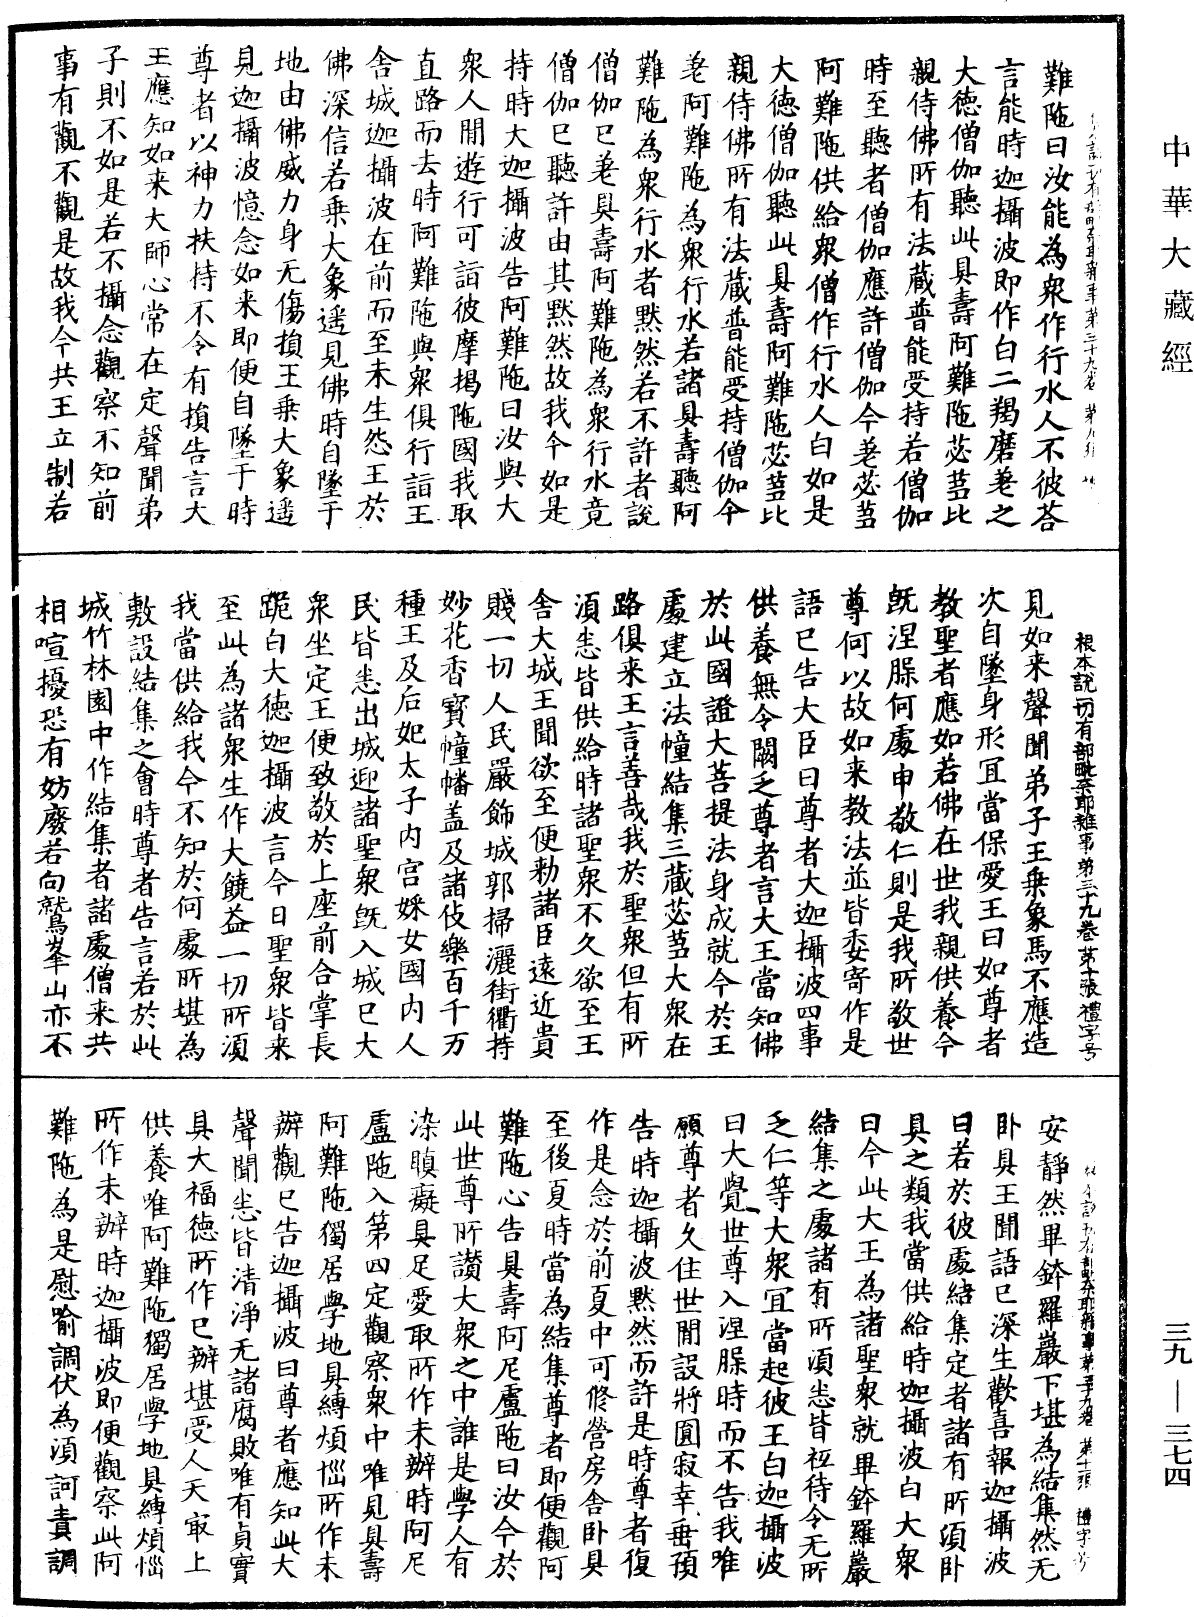 中華大藏經
難陁曰汝能為衆作行水人不彼荅
言能時迦攝波即作白二羯磨差之
大德僧伽聽此具壽阿難陁苾芻比
親侍佛所有法藏普能受持若僧伽
時至聽者僧伽應許僧伽今差苾芻
阿難陁供給衆僧作行水人白如是
大德僧伽聽此具壽阿難陁苾芻比
親侍佛所有法藏普能受持僧伽今
差阿難陁為衆行水若諸具壽聽阿
難陁為衆行水者默然若不許者說
僧伽已差具壽阿難陁為衆行水竟
僧伽已聽許由其默然故我今如是
持時大迦攝波告阿難陁曰汝與大
衆人閒遊行可詣彼摩揭陁國我取
直路而去時阿難陁與衆俱行詣王
舍城迦攝波在前而至未生怨王於
佛深信若乗大象遥見佛時自墜于
地由佛威力身无傷損王乗大象遥
見迦攝波憶念如来即便自墜于時
尊者以神力扶持不令有損告言大
王應知如来大師心常在定聲聞弟
子則不如是若不攝念觀察不知前
事有觀不觀是故我今共王立制若
根本說一切有部毗奈耶雜事第三十九卷 第十張 禮字号
見如来聲聞弟子王乗象馬不應造
次自墜身形冝當保愛王曰如尊者
教聖者應如若佛在世我親供養今
旣涅脲何處申敬仁則是我所敬世
尊何以故如来教法並皆委寄作是
語已告大臣曰尊者大迦攝波四事
供養無令闕乏尊者言大王當知佛
於此國證大菩提法身成就今於王
處建立法幢結集三藏苾芻大衆在
路俱来王言善哉我於聖衆但有所
須悉皆供給時諸聖衆不久欲至王
舍大城王聞欲至便勑諸臣遠近貴
賤一切人民嚴飾城郭掃灑街衢持
妙花香寳幢幡盖及諸伎樂百千万
種王及后妃太子内宫婇女國内人
民皆悉出城迎諸聖衆旣入城已大
衆坐定王便致敬於上座前合掌長
跪白大德迦攝波言今日聖衆皆来
至此為諸衆生作大饒益一切所須
我當供給我今不知於何處所堪為
敷設結集之會時尊者告言若於此
城竹林園中作結集者諸處僧来共
相喧擾恐有妨廢若向鷲峯山亦不
安靜然畢鉢羅巖下堪為結集然无
卧具王聞語已深生歡喜報迦攝波
曰若於彼處結集定者諸有所須卧
具之類我當供給時迦攝波白大衆
曰今此大王為諸聖衆就畢鉢羅巖
結集之處諸有所須悉皆祗待令无所
乏仁等大衆冝當起彼王白迦攝波
曰大覺世尊入涅脲時而不告我唯
願尊者久住世閒設將圓寂幸垂預
告時迦攝波默然而許是時尊者復
作是念於前夏中可修營房舍卧具
至後夏時當為結集尊者即便觀阿
難陁心告具壽阿尼盧陁曰汝今於
此世尊所讃大衆之中誰是學人有
染瞋癡具足愛取所作未辦時阿尼
盧陁入第四定觀察衆中唯見具壽
阿難陁獨居學地具縛煩惱所作未
辦觀已告迦攝波曰尊者應知此大
聲聞悉皆清淨无諸腐敗唯有貞實
具大福德所作已辦堪受人天冣上
供養唯阿難陁獨居學地具縛煩惱
所作未辦時迦攝波即便觀察此阿
難陁為是慰喻調伏為須訶責調
三九—三七四